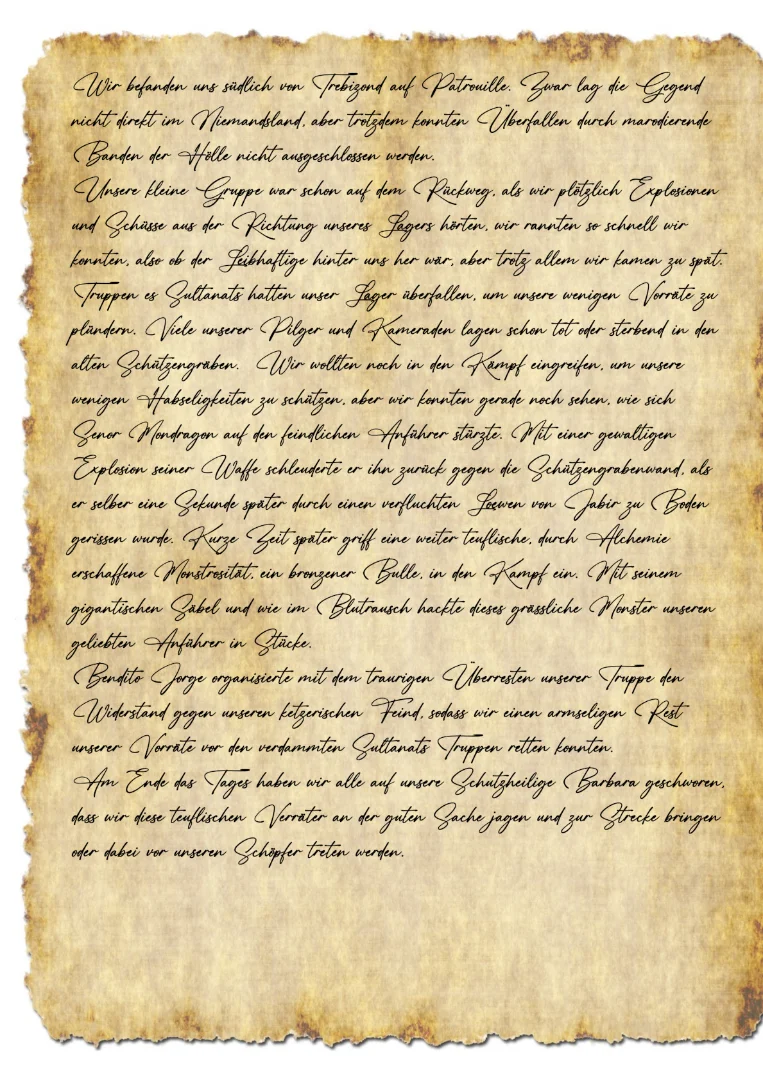 Wir befanden uns südlich von Trebizond auf Patrouille. Zwar lag die Gegend
nicht direkt im Niemandsland, aber trotzdem konnten Überfallen durch marodierende
Banden der Hölle nicht ausgeschlossen werden.
Unsere kleine Gruppe war schon auf dem Rückweg, als wir plötzlich Explosionen
und Schüsse aus der Richtung unseres Lagers hörten, wir rannten so schnell wir
konnten, also ob der Leibhaftige hinter uns her wär, aber trotz allem wir kamen zu spät.
Truppen es Sultanats hatten unser Lager überfallen, um unsere wenigen Vorräte zu
plündern. Viele unserer Pilger und Kameraden lagen schon tot oder sterbend in den
alten Schützengräben. Wir wollten noch in den Kampf eingreifen, um unsere
wenigen Habseligkeiten zu schützen, aber wir konnten gerade noch sehen, wie sich
Senor Mondragon auf den feindlichen Anführer stürzte. Mit einer gewaltigen
Explosion seiner Waffe schleuderte er ihn zurück gegen die Schützengrabenwand, als
er selber eine Sekunde später durch einen verfluchten Loewen von Jabir zu Boden
gerissen wurde. Kurze Zeit später griff eine weiter teuflische, durch Alchemie
erschaffene Monstrosität, ein bronzener Bulle, in den Kampf ein. Mit seinem
gigantischen Säbel und wie im Blutrausch hackte dieses grässliche Monster unseren
geliebten Anführer in Stücke.
Bendito Jorge organisierte mit dem traurigen Überresten unserer Truppe den
Widerstand gegen unseren ketzerischen Feind, sodass wir einen armseligen Rest
unserer Vorräte vor den verdammten Sultanats Truppen retten konnten.
Am Ende das Tages haben wir alle auf unsere Schutzheilige Barbara geschworen,
dass wir diese teuflischen Verräter an der guten Sache jagen und zur Strecke bringen
oder dabei vor unseren Schöpfer treten werden.